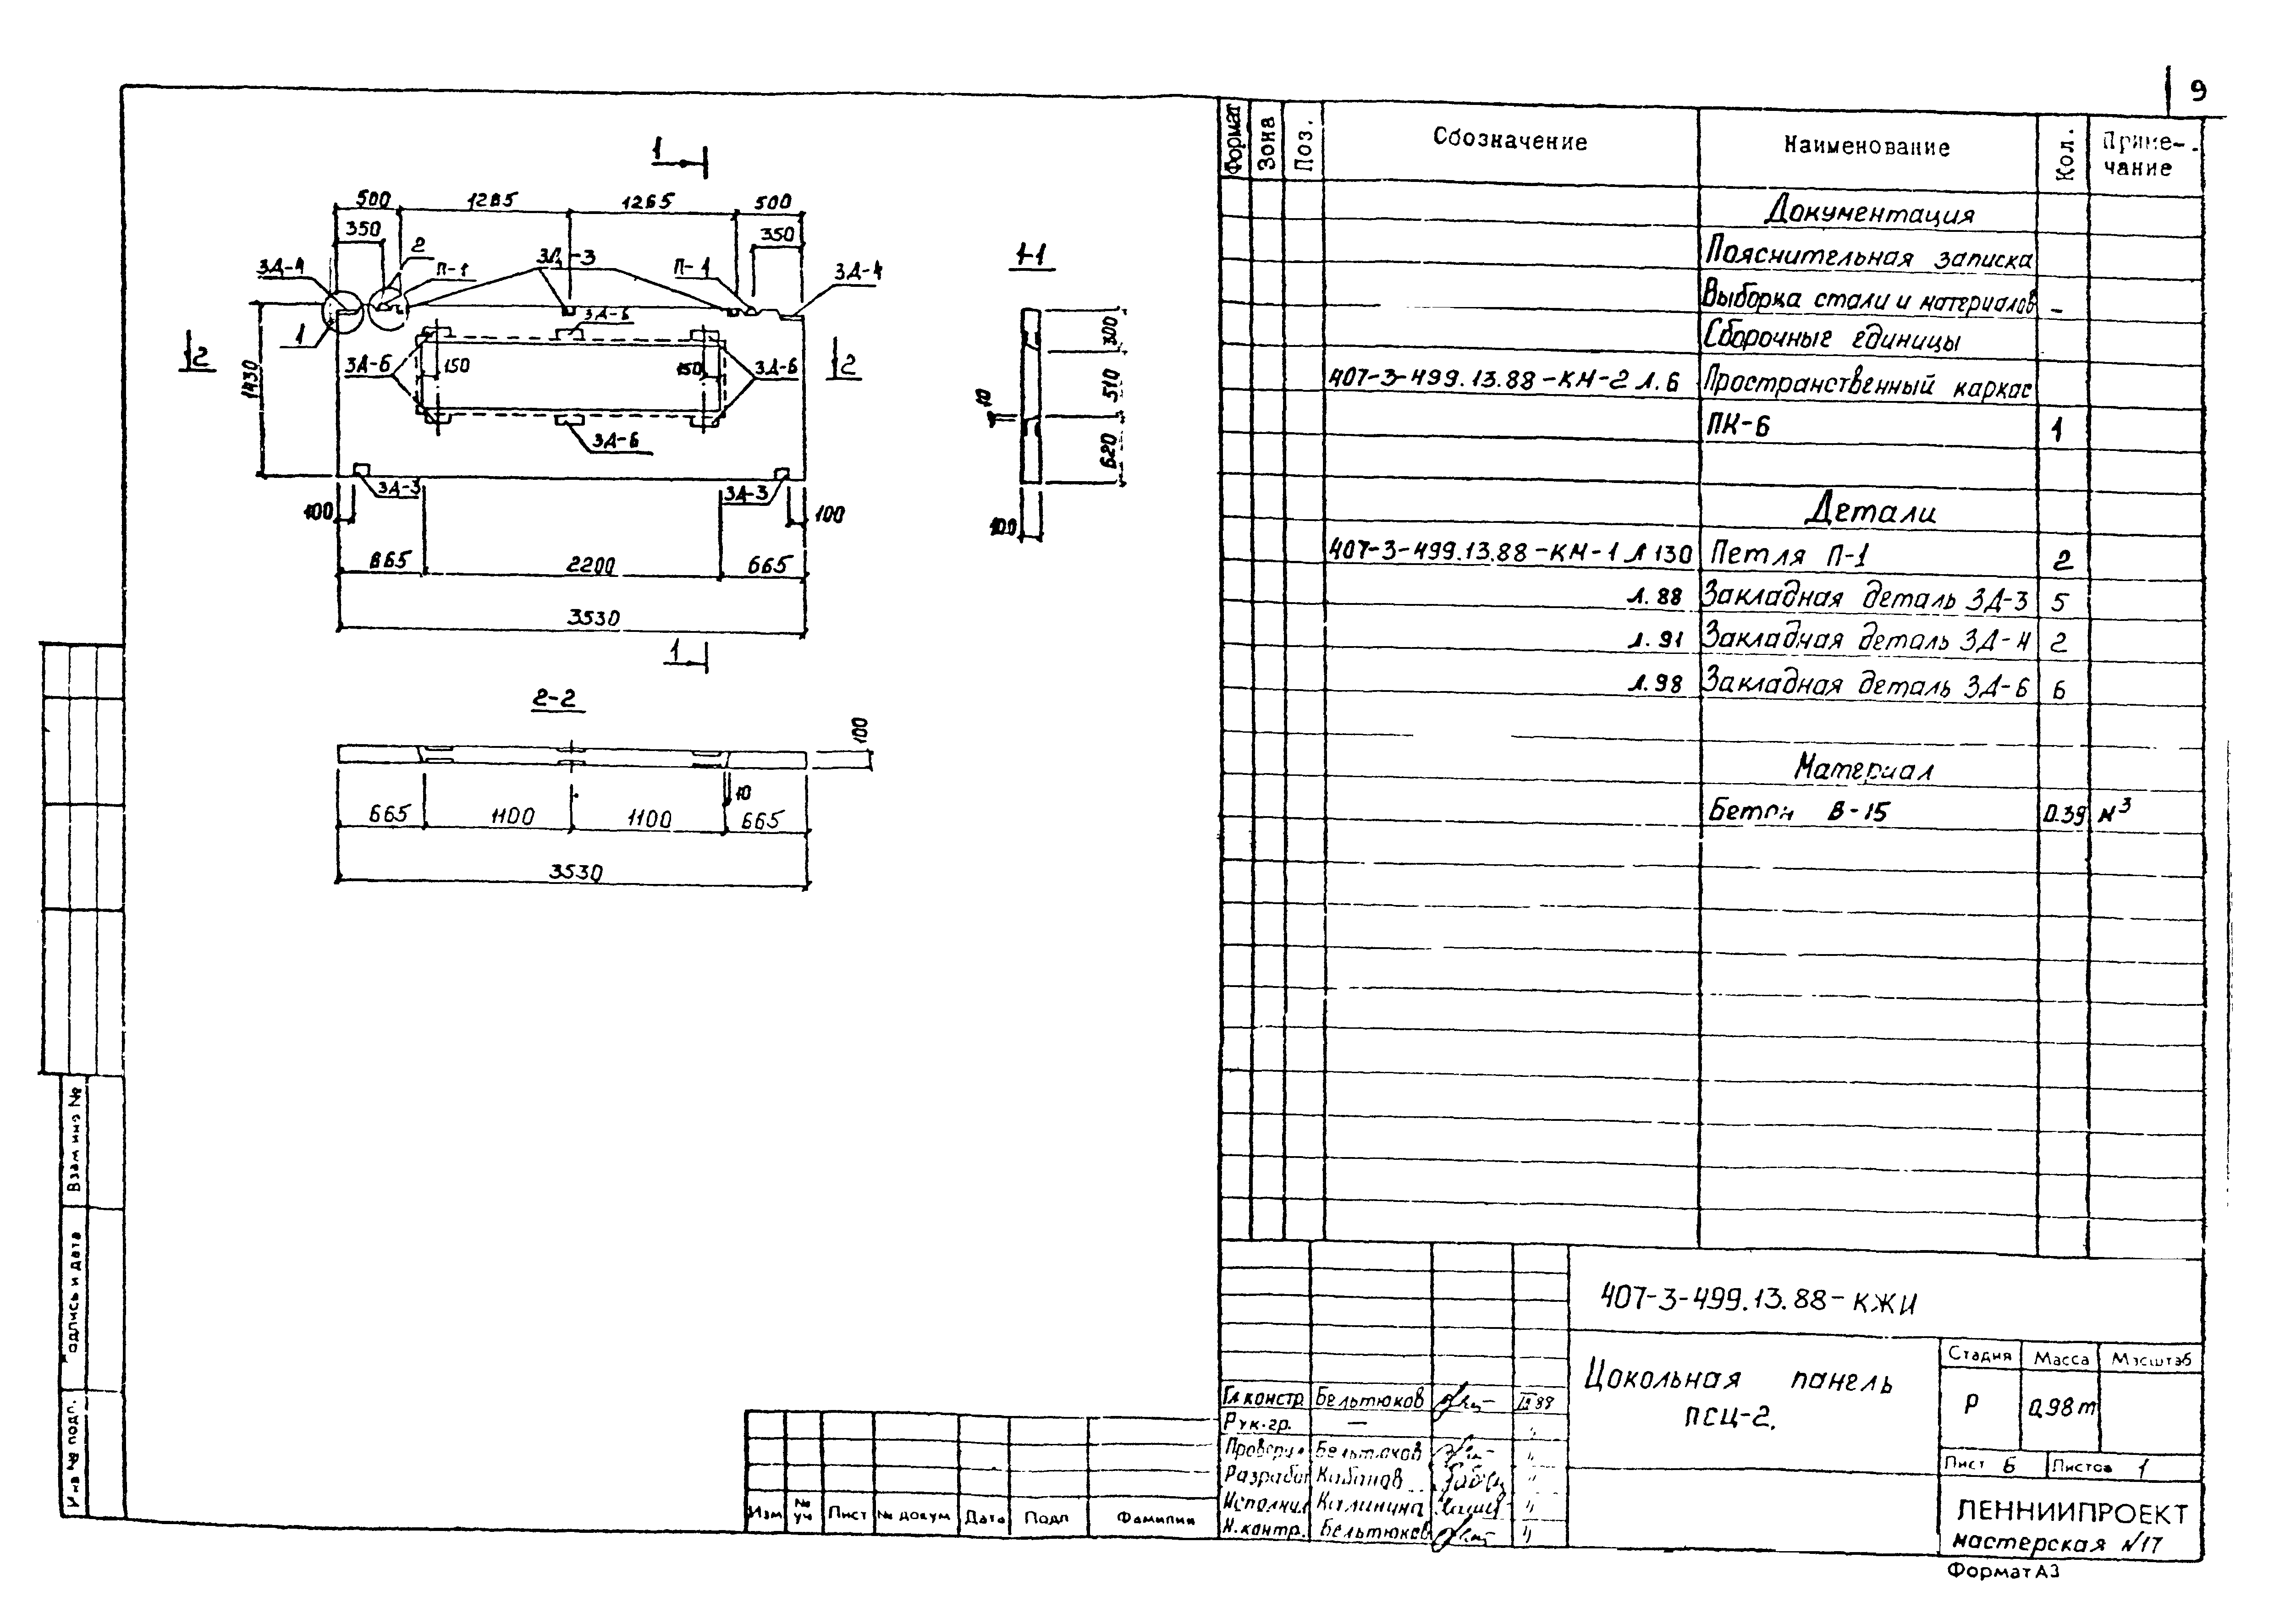 9
1
500 1265 1265 500
350 2 350
ЗД-4 П-1 ЗД-3 П-1 ЗД-4
1
ЗД-6
2 2
ЗД-6 150 150 ЗД-6
1430
ЗД-6
ЗД-3 ЗД-3
100 100
665 2200 665
3530
1
1-1
300
510
620
10
100
2-2
100
10
665 1100 1100 665
3530
Формат Зона Поз. Обозначение Наименование Кол. Приме-
чание
Документация
Пояснительная записка
Выборка стали и материалов –
Сборочные единицы
407-3-499.13.88-КН-2 Л.6 Пространственный каркас
ПК-6 1
Детали
407-3-499.13.88-КН-1 Л 130 Петля П-1 2
Л.88 Закладная деталь ЗД-3 5
Л.91 Закладная деталь ЗД-4 2
Л.98 Закладная деталь ЗД-6 6
Материал
Бетон В-15 0.39 м³
407-3-499.13.88-КЖИ
Цокольная панель
ПСЦ-2.
Стадия Масса Масштаб
Р 0,98т
Лист 6 Листов 1
ЛЕННИИПРОЕКТ
мастерская №17
Формат А3
Гл констр. Бельтюков 88
Рук.гр. —
Проверил Бельтюков "
Разработ Кабанов "
Исполнил Калинина "
Н.контр. Бельтюков "
Изм № уч Лист № докум Дата Подп Фамилия
Взам инв №
Подпись и дата
Инв № подп.